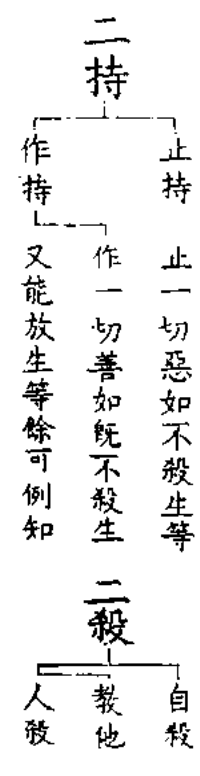 二持
止持
止一切惡如不殺生等
作持
作一切善如既不殺生
又能放生等餘可例知
二殺
自殺
教他
人殺